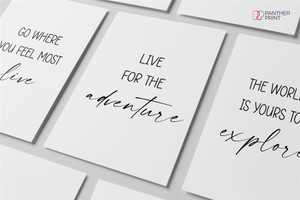 PANTHER-
PRINT
GO WHERE
YOU FEEL MOST
live
LIVE
FOR THE
adventure
THE WORLD
IS YOURS TO
explore